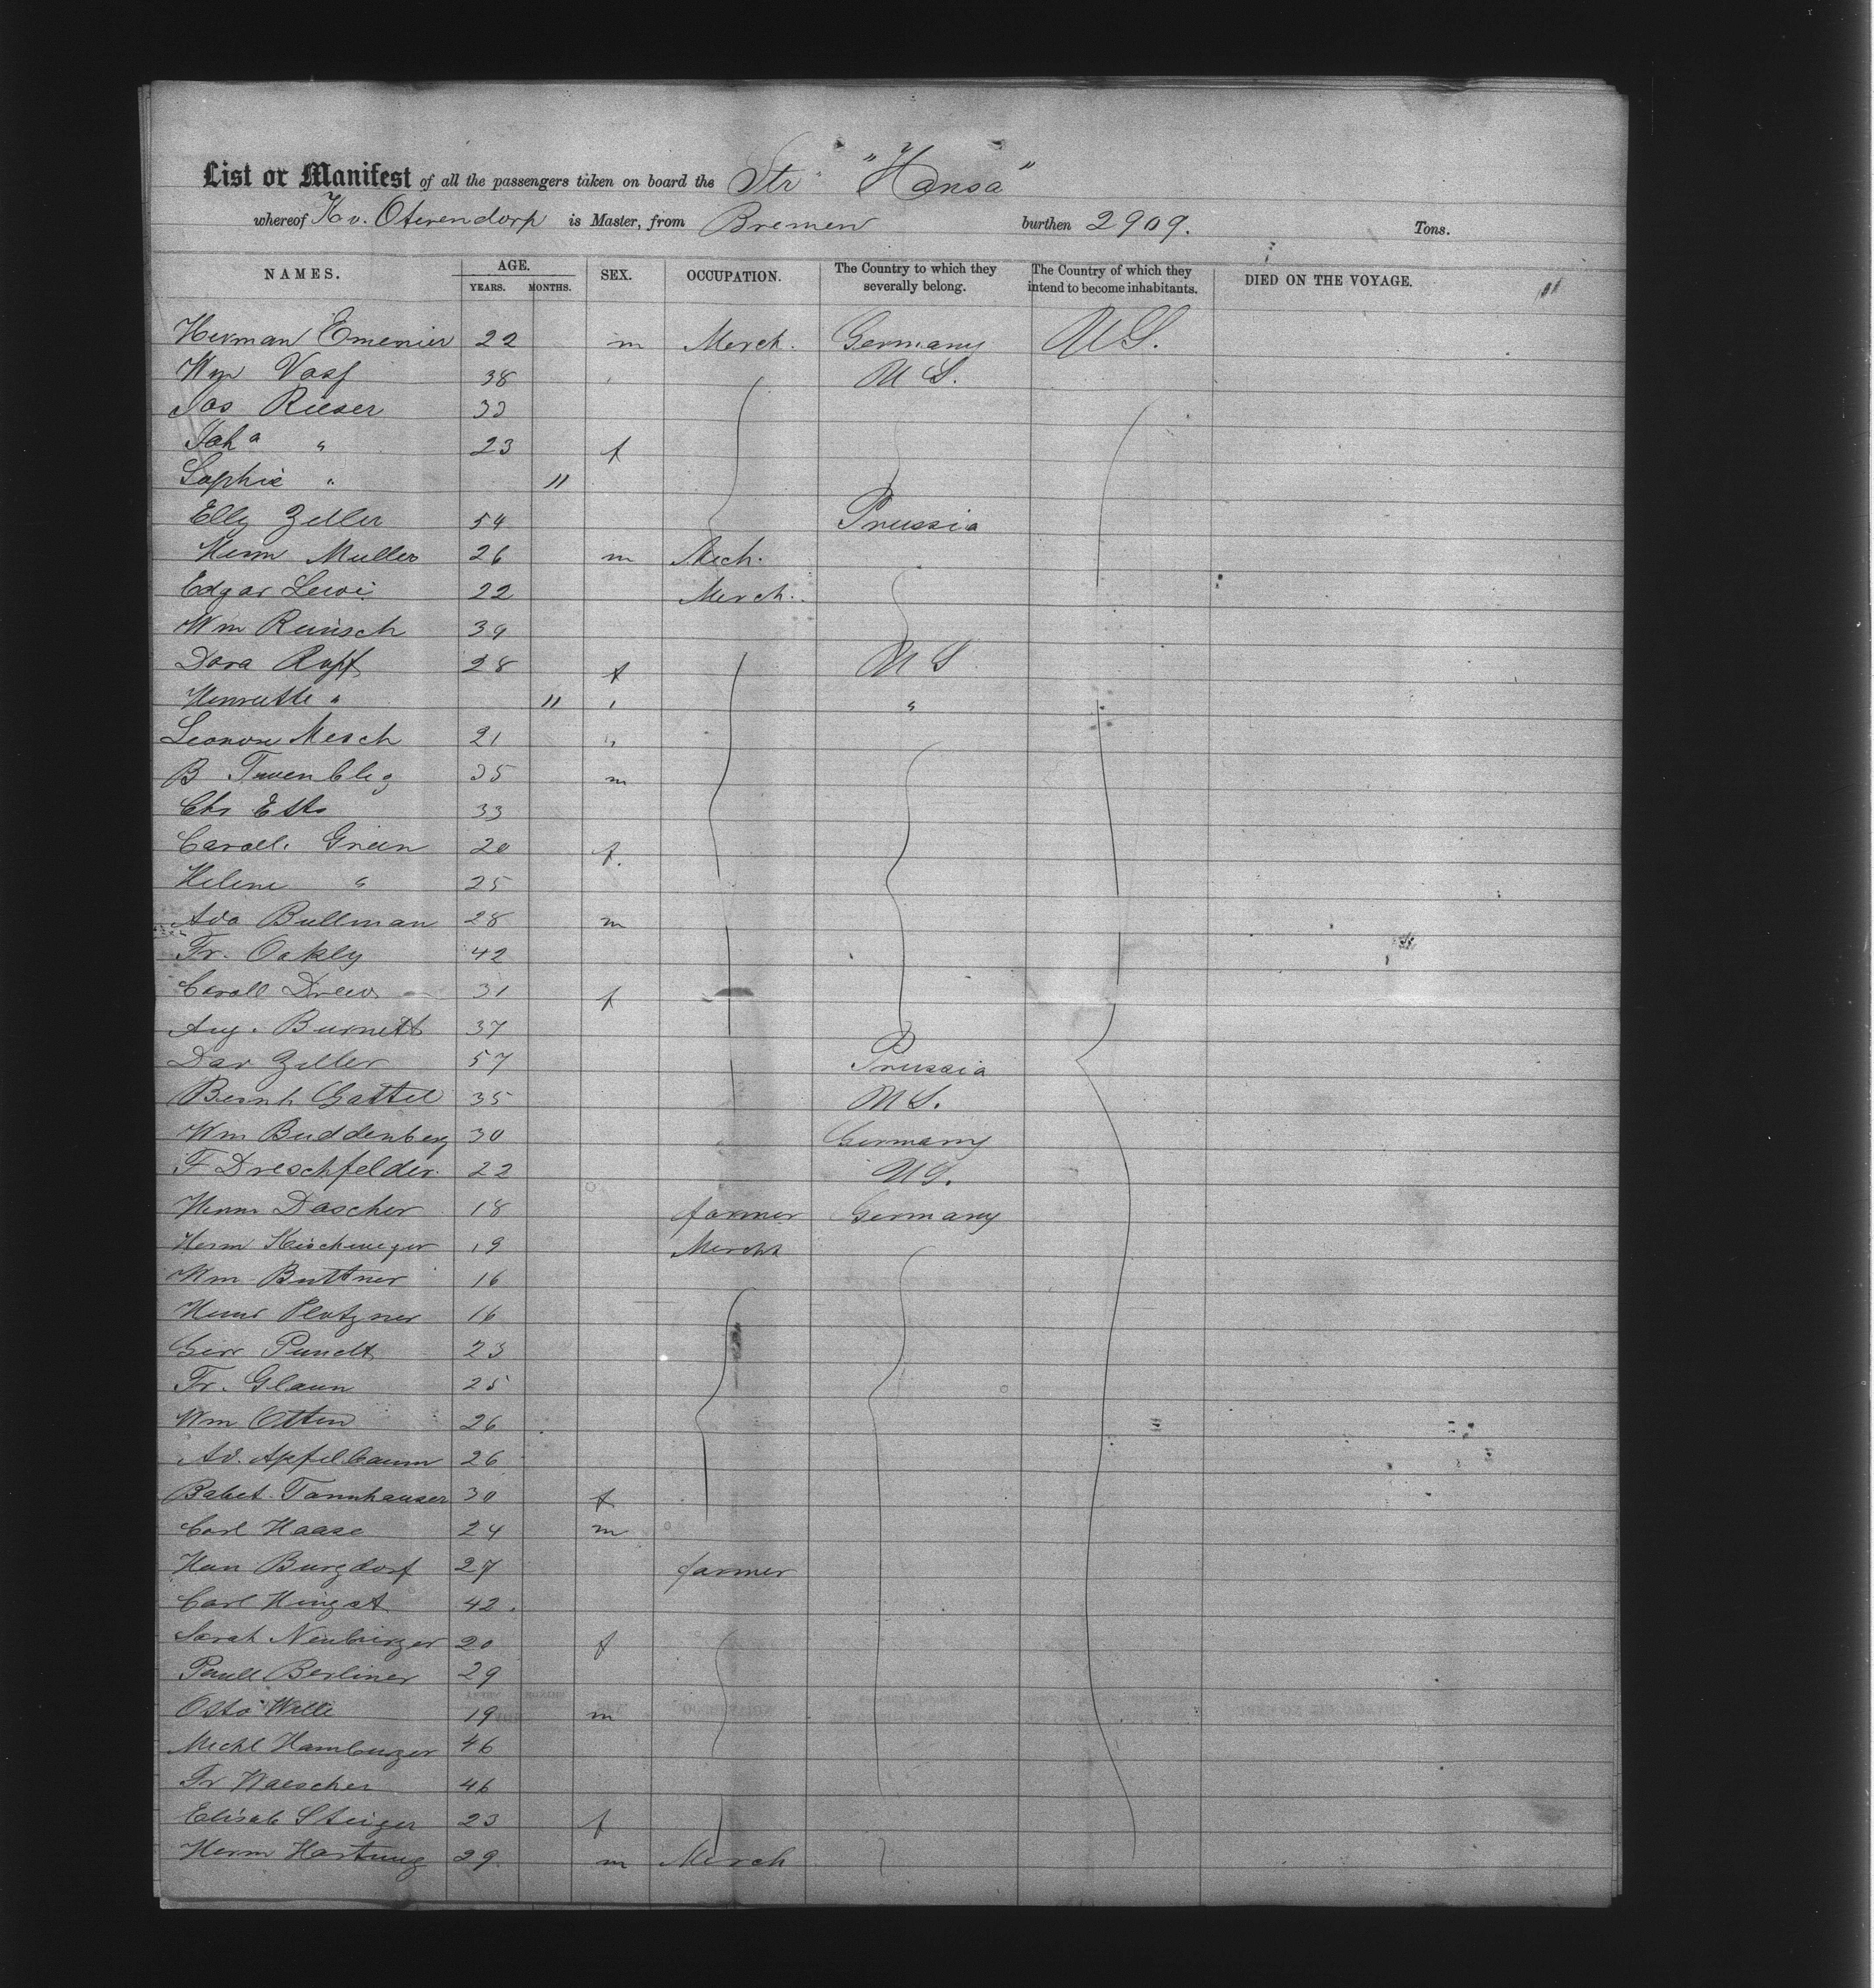 List or Manifest of all the passengers taken on board the Str "Hansa"
whereof K v. Oterendorp is Master, from Bremen burthen 2909. Tons.
NAMES. AGE. YEARS. MONTHS. SEX. OCCUPATION. The Country to which they severally belong. The Country of which they intend to become inhabitants. DIED ON THE VOYAGE.
Herman Emenier 22 m Merch. Germany US.
Wm Vass 38 U S.
Jos Rieser 33
Joha " 23 f
Sophie " 11
Elly Zeller 54 Prussia
Herm Muller 26 m Mech.
Edgar Lewi 22 Merch.
Wm Reinisch 39
Dora Rupf 28 f U S
Henriette " 11 " "
Leonore Mesch 21 "
B 35 m
Chr Etts 33
Caroll. Green 20 f.
Helene " 25
Ado Bullman 28 m
Fr. Oakley 42
Caroll Drews 31 f
Aug. Burnett 37
Dav Zeller 57 Prussia
Bernh Gattel 35 U S.
Wm Buddenberg 30 Germany
F Dreschfelder. 22 U S.
Herm Dascher 18 farmer Germany
Herm 19 Mercht
Wm Buttner 16
Platzner 16
Gerr Pundt 23
Fr. Glaun 25
Wm Otten 26
Ad. Apfelbaum 26
Babet. Tannhauser 30 f
Carl Haase 24 m
Han Burgdorf 27 farmer
Carl Hingst 42.
Sarah Neuburger 20 f
Paull Berliner 29
Otto Wille 19 m
Michl Hamburger 46
Fr Waescher 46
Elisab Steiger 23 f
Herm Hartung 29. m Merch